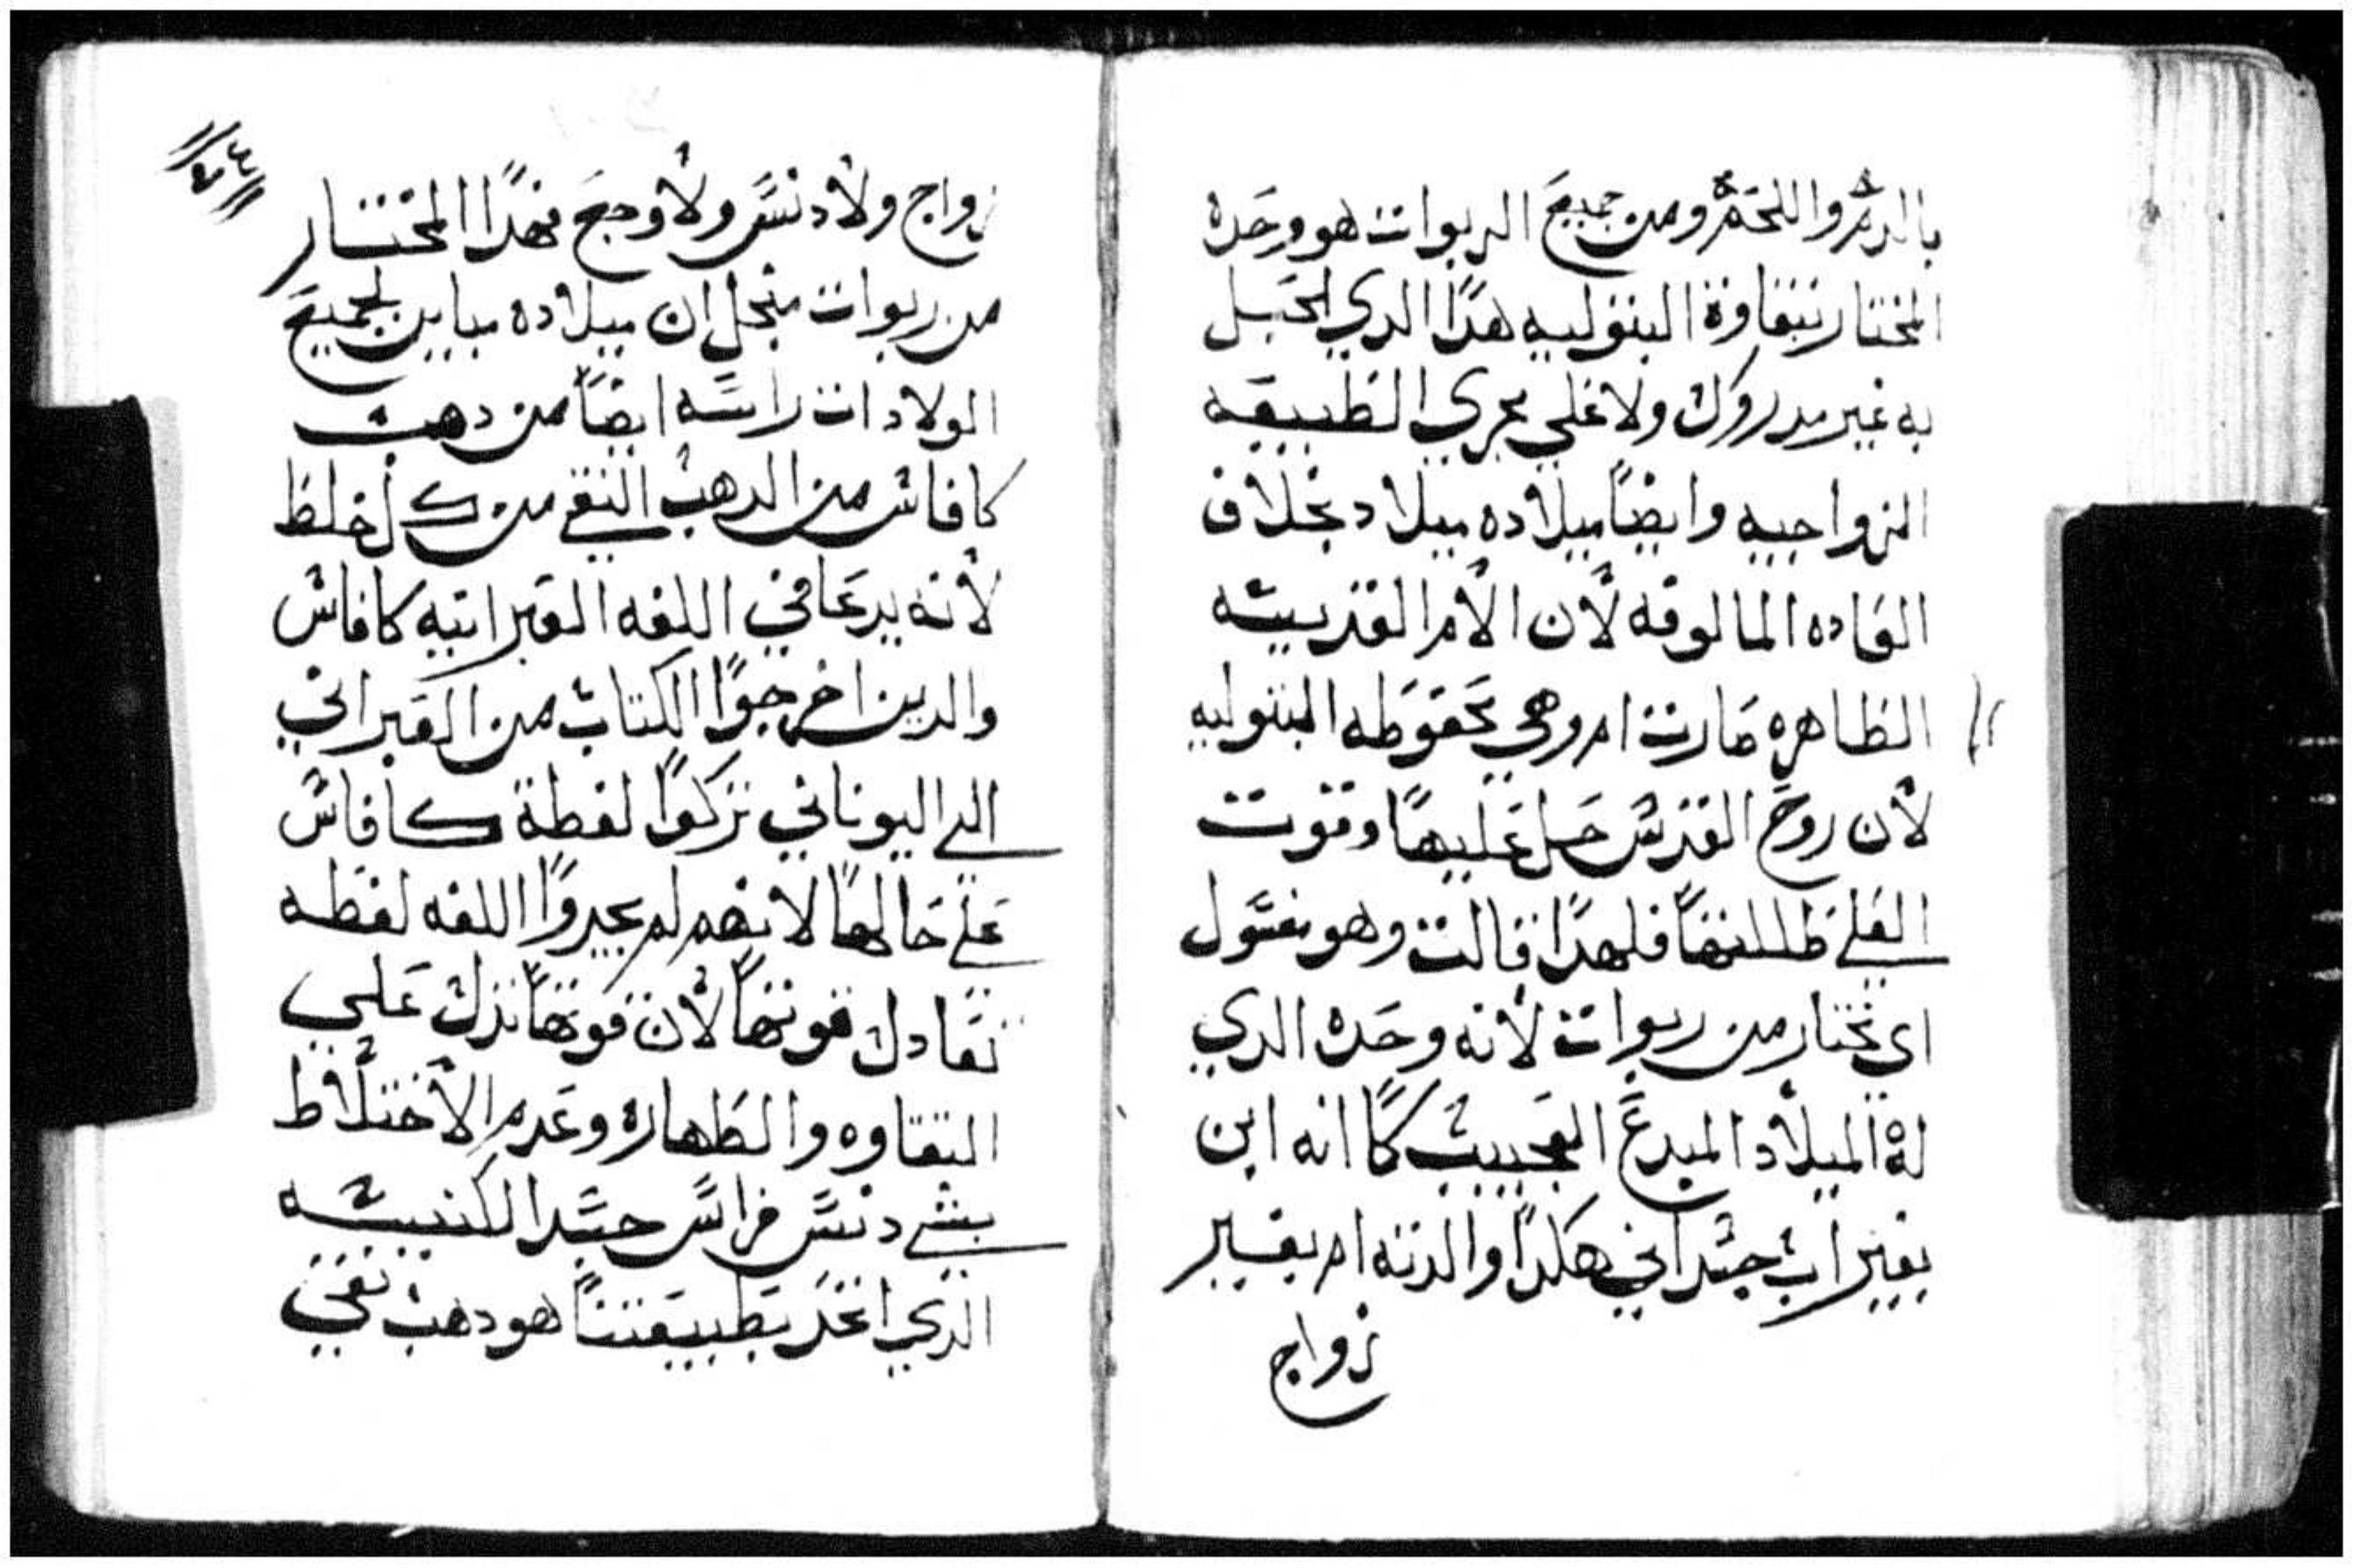 بالدم واللحم ومن جميع الربوات هو وحده
المختار بنقاوة البتوليه هدا الدي الحبل
به غير مدروك ولا علي مجري الطبيعه
الزواجيه وايضاً ميلاده ميلاد بخلاف
العاده المالوفه لأن الأم القديسه
الطاهره صارت ام وهي محفوظه البتوليه
لأن روح القدس حل عليها وقوت
العلي ظللتها فلهدا قالت وهو يقول
اي تختار من ربوات لأنه وحده الدي
له الميلاد المبدع العجيب كما انه ابن
بغير اب جسداني هكدا والدته ام بغير
زواج
زواج ولا دنس ولا وجع فهدا المختار
من ربوات منجل ان ميلاده مباين لجميع
الولادات راسه ايضاً من دهب
كافاس من الدهب النقي من كل خلط
لأنه يدعا في اللغه العبرانيه كافاس
والدين اخرجوا الكتاب من العبراني
الي اليوناني تركوا لفظة كافاس
علي حالها لانهم لم يجدوا اللغه لفظه
تعادل قوتها لأن قوتها تدل علي
النقاوه والطهاره وعدم الأختلاط
بشي دنس فراس جسد الكنيسه
الدي اتخد بطبيعتنا هو دهب نقي